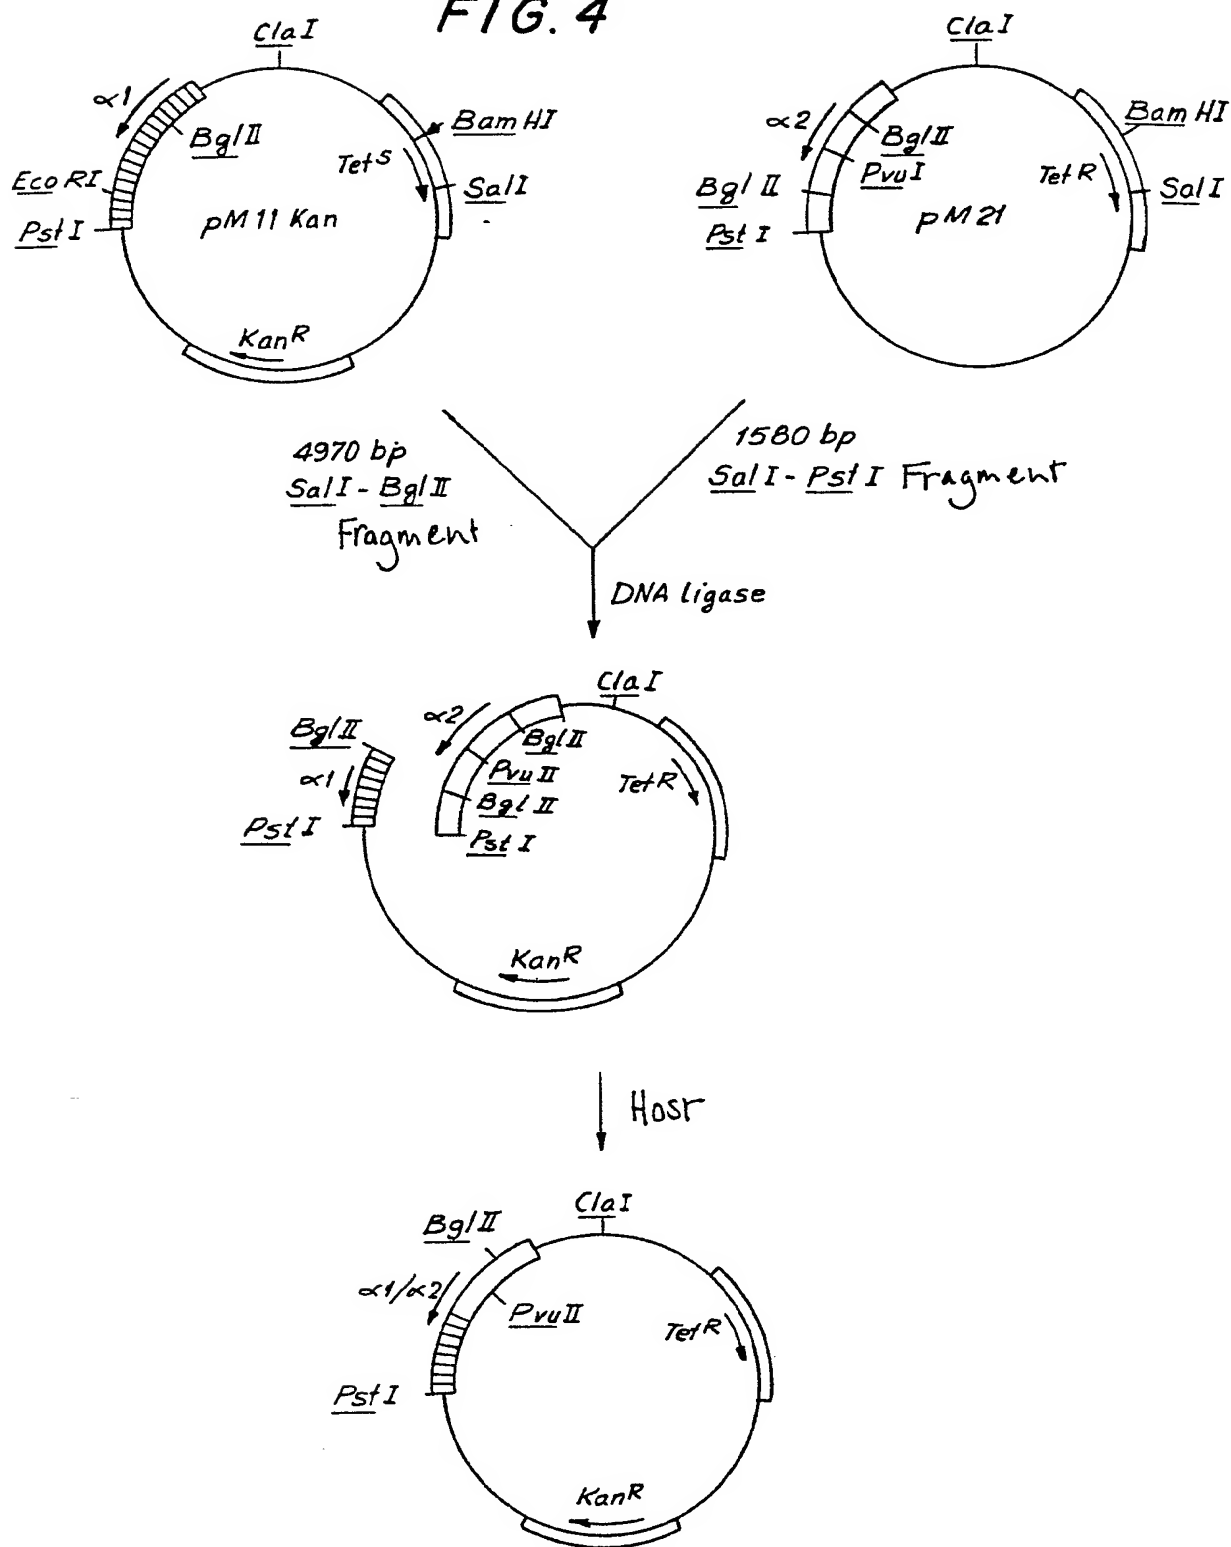 FIG. 4
ClaI
α1
BglII
BamHI
TetS
EcoRI
SalI
PstI
pM11 Kan
KanR
ClaI
α2
BglII
BamHI
PvuI
TetR
BglII
SalI
PstI
pM21
4970 bp
SalI-BglII
Fragment
1580 bp
SalI-PstI Fragment
DNA ligase
ClaI
α2
BglII
BglII
α1
PvuII
TetR
BglII
PstI
PstI
KanR
Host
ClaI
BglII
α1/α2
PvuII
TetR
PstI
KanR